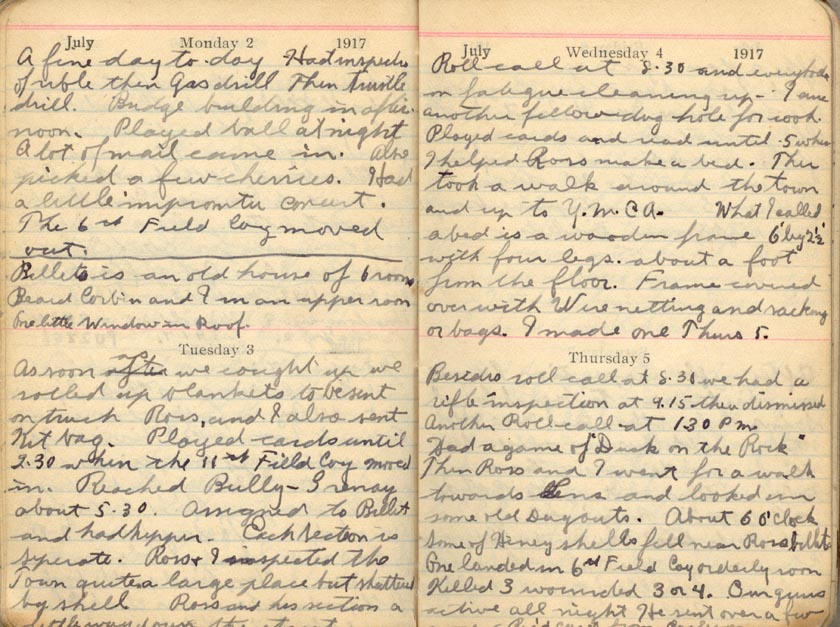 July Monday 2 1917
A fine day to-day Had inspectio
of rible then Gas drill Then
drill. Bridge building in after
noon. Played ball at night
A lot of mail came in. also
picked a few cherries. Had
a little impromtu concert.
The 6 st Field Coy moved
out.
Billets is an old house of 6 room
Beard Corbin and I in an upper room
One little Window in Roof.
Tuesday 3
As soon after as we cought up we
rolled up blankets to be sent
on truck Ross, and I also sent
Kit bag. Played cards until
2.30 when the 11 st Field Coy moved
in. Reached Bully-Grenay
about 5.30. Assigned to Billet
and had supper. Each section is
seperate. Ross & I inspected the
Town quite a large place but shattered
by shell Ross and his section a
little way down the street
July Wednesday 4 1917
Roll-call at 8.30 and everybody
on fatigue cleaning up- I and
another fellow dug hole for cook
Played cards and read until 5 when
I helped Ross make a bed. Then
took a walk around the town
and up to Y.M.C.A. What I called
a bed is a wooden frame 6' by 2½'
with four legs. about a foot
from the floor. Frame covered
over with Wire netting and sacking
or bags. I made one Thurs 5.
Thursday 5
Besides roll call at 8.30 we had a
rifle inspection at 9.15 then dismissed
Another Roll-call at 1.30 P.m.
Had a game of "Dusk on the Rock"
Then Ross and I went for a walk
towards Lens and looked in
some old Dugouts. About 6 O'clock
Some of Heney shells fell near Ross billets
One landed in 6 st Field Coy orderly room
Killed 3 wounded 3 or 4. Our guns
active all night He sent over a few